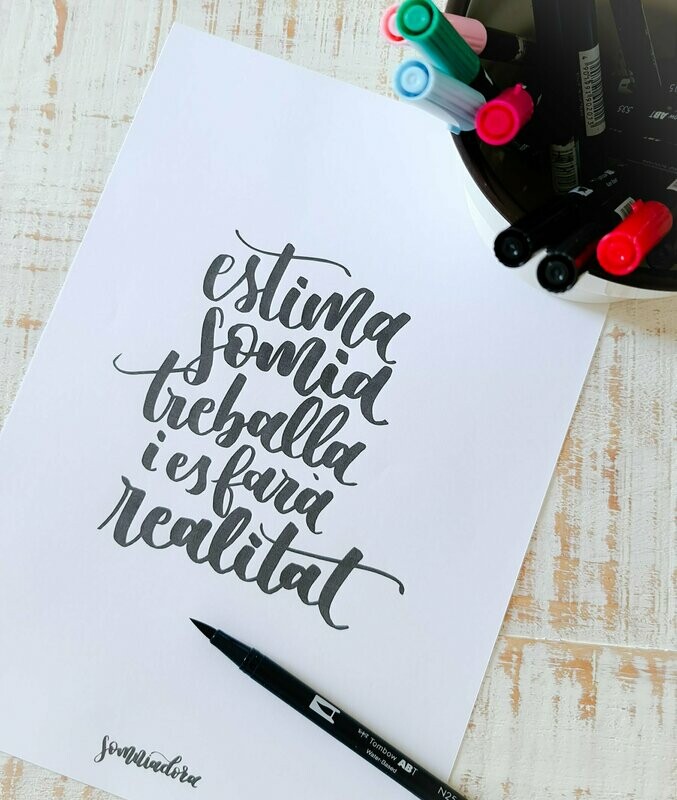 estima
somia
treballa
i es farà
realitat
somniadora
Tombow ABT
Water-Based
N25
535